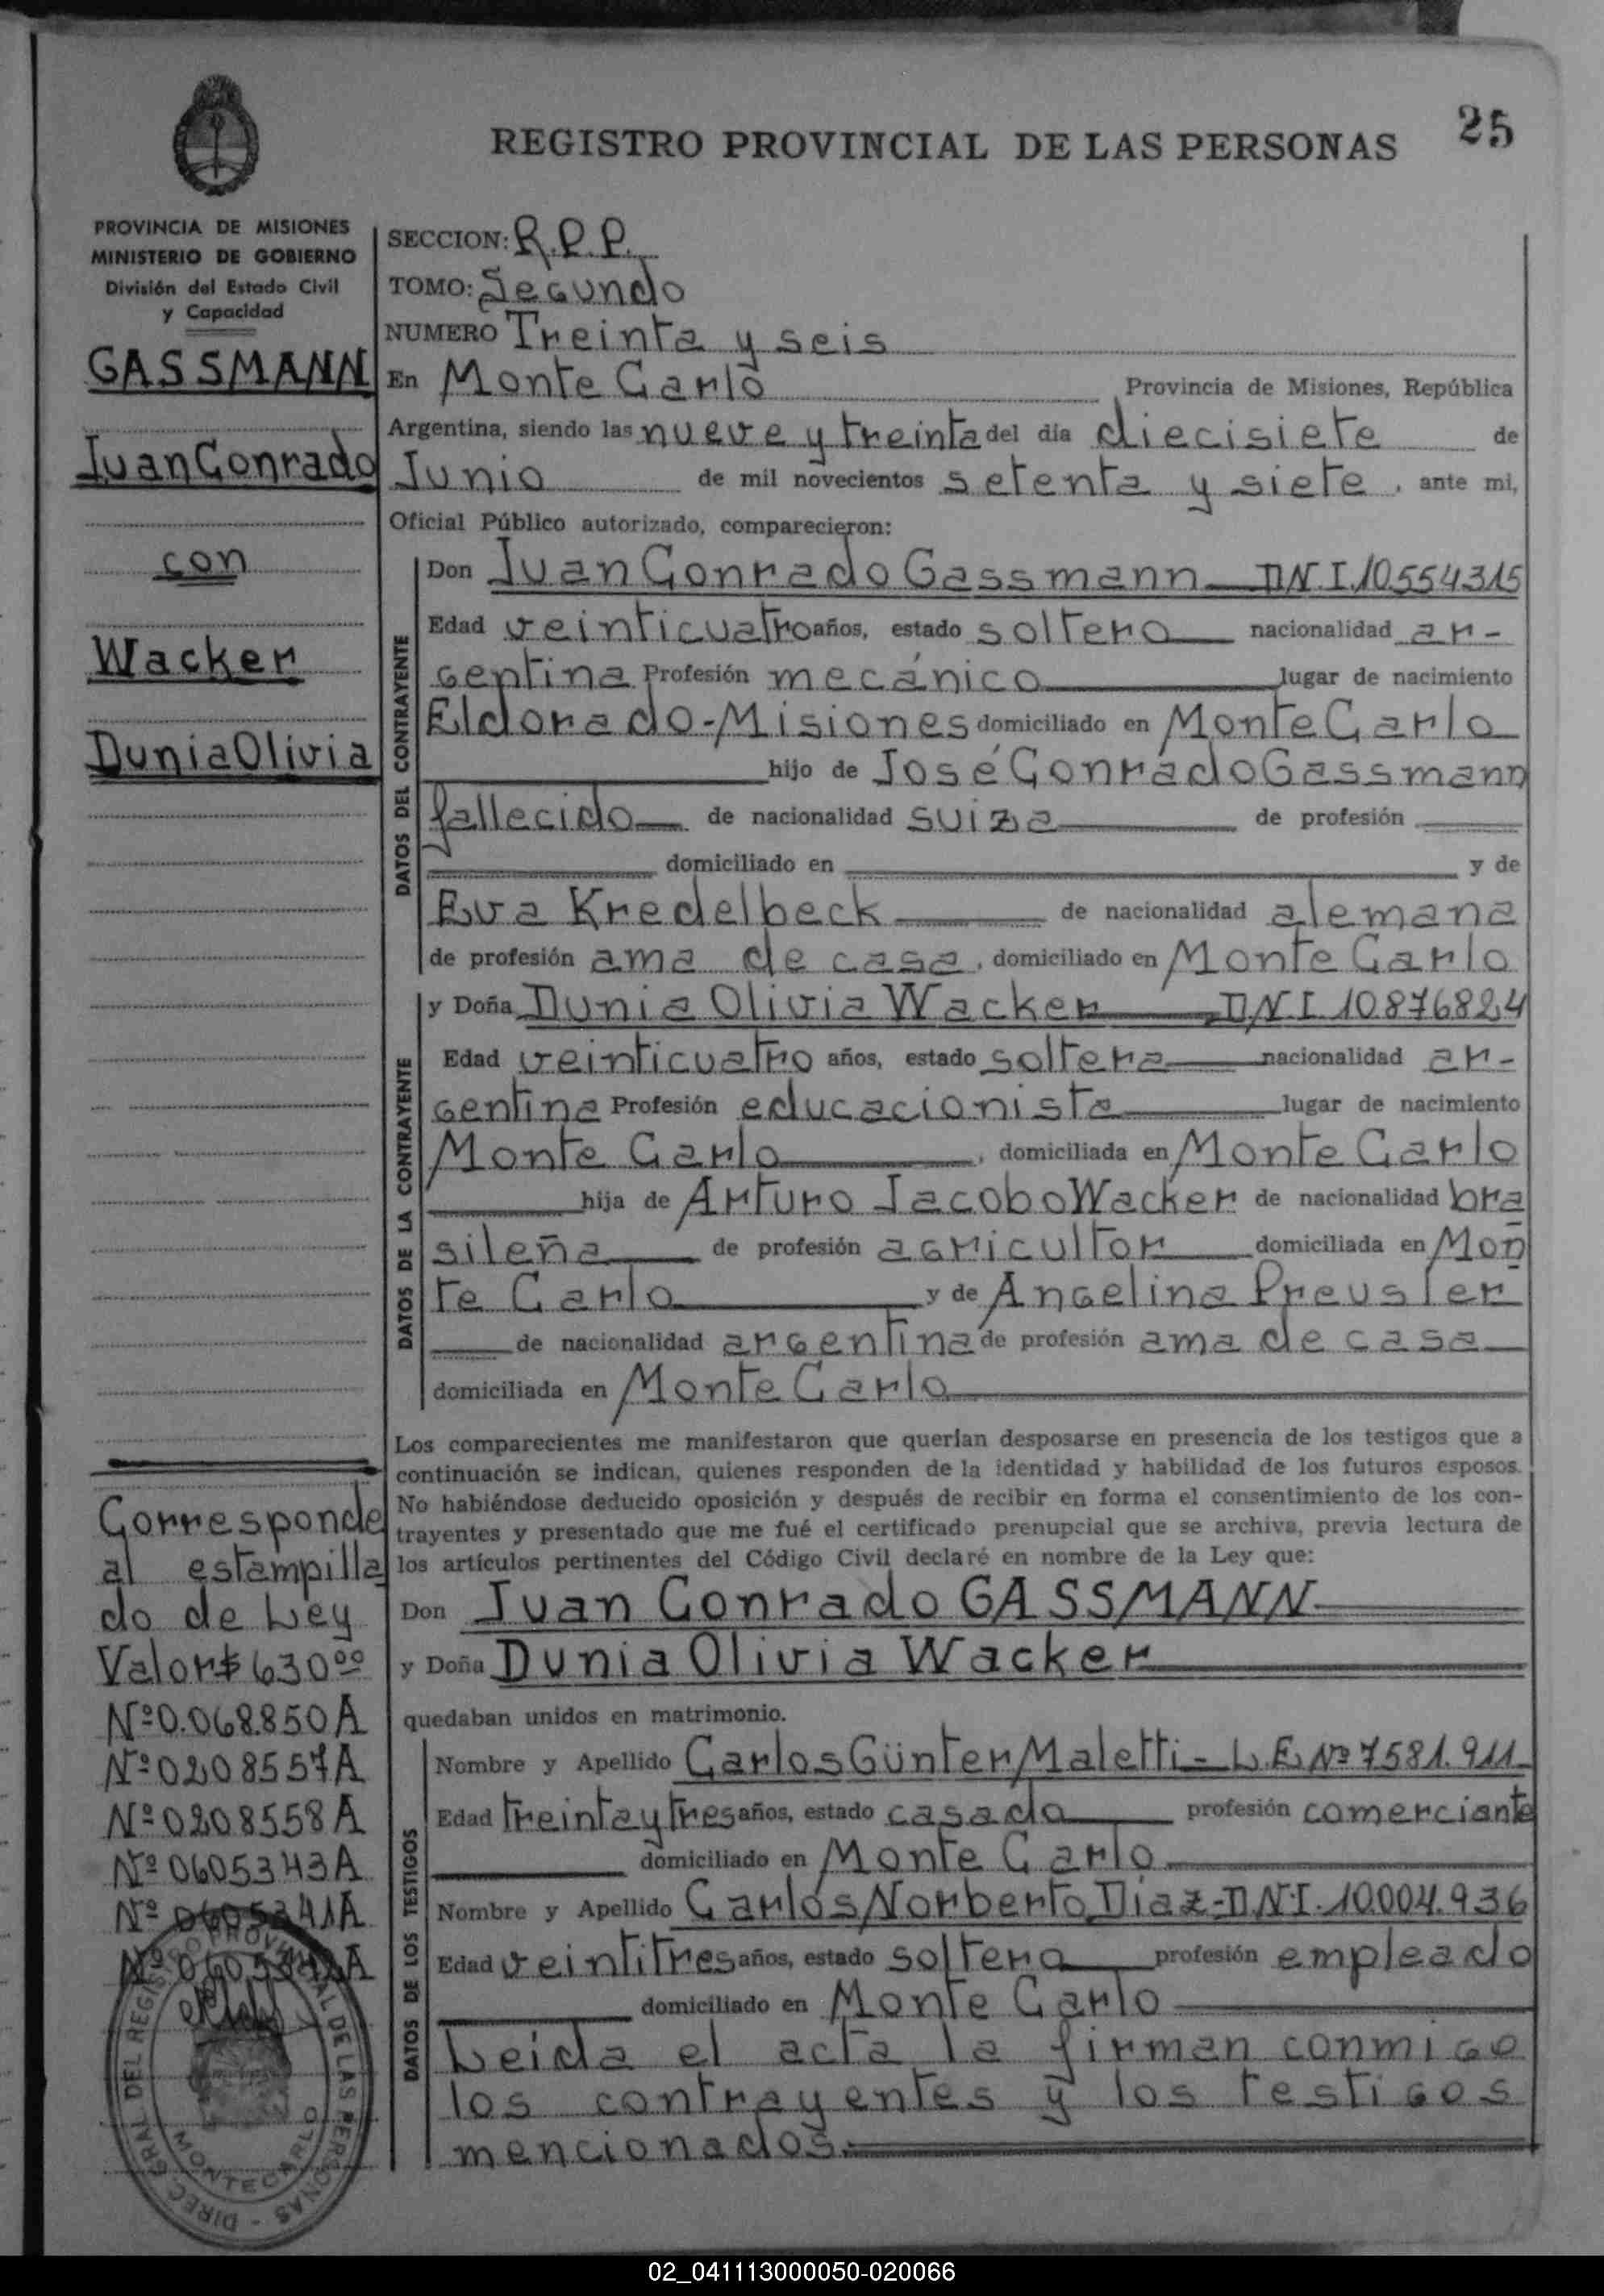 REGISTRO PROVINCIAL DE LAS PERSONAS
25
PROVINCIA DE MISIONES
MINISTERIO DE GOBIERNO
División del Estado Civil
y Capacidad
GASSMANN
Juan Conrado
con
Wacker
Dunia Olivia
Corresponde
al estampilla
do de Ley
Valor $ 630⁰⁰
Nº 0.068.850 A
Nº 0208557 A
Nº 0208558 A
Nº 0605343 A
Nº 0605341 A
DIREC. GRAL. DEL REGISTRO PROVINCIAL DE LAS PERSONAS -
MONTECARLO
SECCION: R.P.P.
TOMO: Segundo
NUMERO Treinta y seis
En Monte Carlo Provincia de Misiones, República
Argentina, siendo las nueve y treinta del día diecisiete de
Junio de mil novecientos setenta y siete, ante mi,
Oficial Público autorizado, comparecieron:
DATOS DEL CONTRAYENTE
Don Juan Conrado Gassmann DNI 10.554315
Edad veinticuatro años, estado soltero nacionalidad ar-
gentina Profesión mecánico lugar de nacimiento
Eldorado-Misiones domiciliado en Monte Carlo
hijo de José Conrado Gassmann
fallecido de nacionalidad suiza de profesión
domiciliado en y de
Eva Kredelbeck de nacionalidad alemana
de profesión ama de casa, domiciliado en Monte Carlo
DATOS DE LA CONTRAYENTE
y Doña Dunia Olivia Wacker DNI 10.876824
Edad veinticuatro años, estado soltera nacionalidad ar-
gentina Profesión educacionista lugar de nacimiento
Monte Carlo, domiciliada en Monte Carlo
hija de Arturo Jacobo Wacker de nacionalidad bra
sileña de profesión agricultor domiciliada en Mon
te Carlo y de Angelina Preusler
de nacionalidad argentina de profesión ama de casa
domiciliada en Monte Carlo
Los comparecientes me manifestaron que querían desposarse en presencia de los testigos que a
continuación se indican, quienes responden de la identidad y habilidad de los futuros esposos.
No habiéndose deducido oposición y después de recibir en forma el consentimiento de los con-
trayentes y presentado que me fué el certificado prenupcial que se archiva, previa lectura de
los artículos pertinentes del Código Civil declaré en nombre de la Ley que:
Don Juan Conrado GASSMANN
y Doña Dunia Olivia Wacker
quedaban unidos en matrimonio.
DATOS DE LOS TESTIGOS
Nombre y Apellido Carlos Günter Maletti - L.E. Nº 7581.911
Edad treinta y tres años, estado casado profesión comerciante
domiciliado en Monte Carlo
Nombre y Apellido Carlos Norberto Diaz - DNI. 10.004.936
Edad veintitres años, estado soltero profesión empleado
domiciliado en Monte Carlo
Leida el acta la firman conmigo
los contrayentes y los testigos
mencionados.
02_041113000050-020066